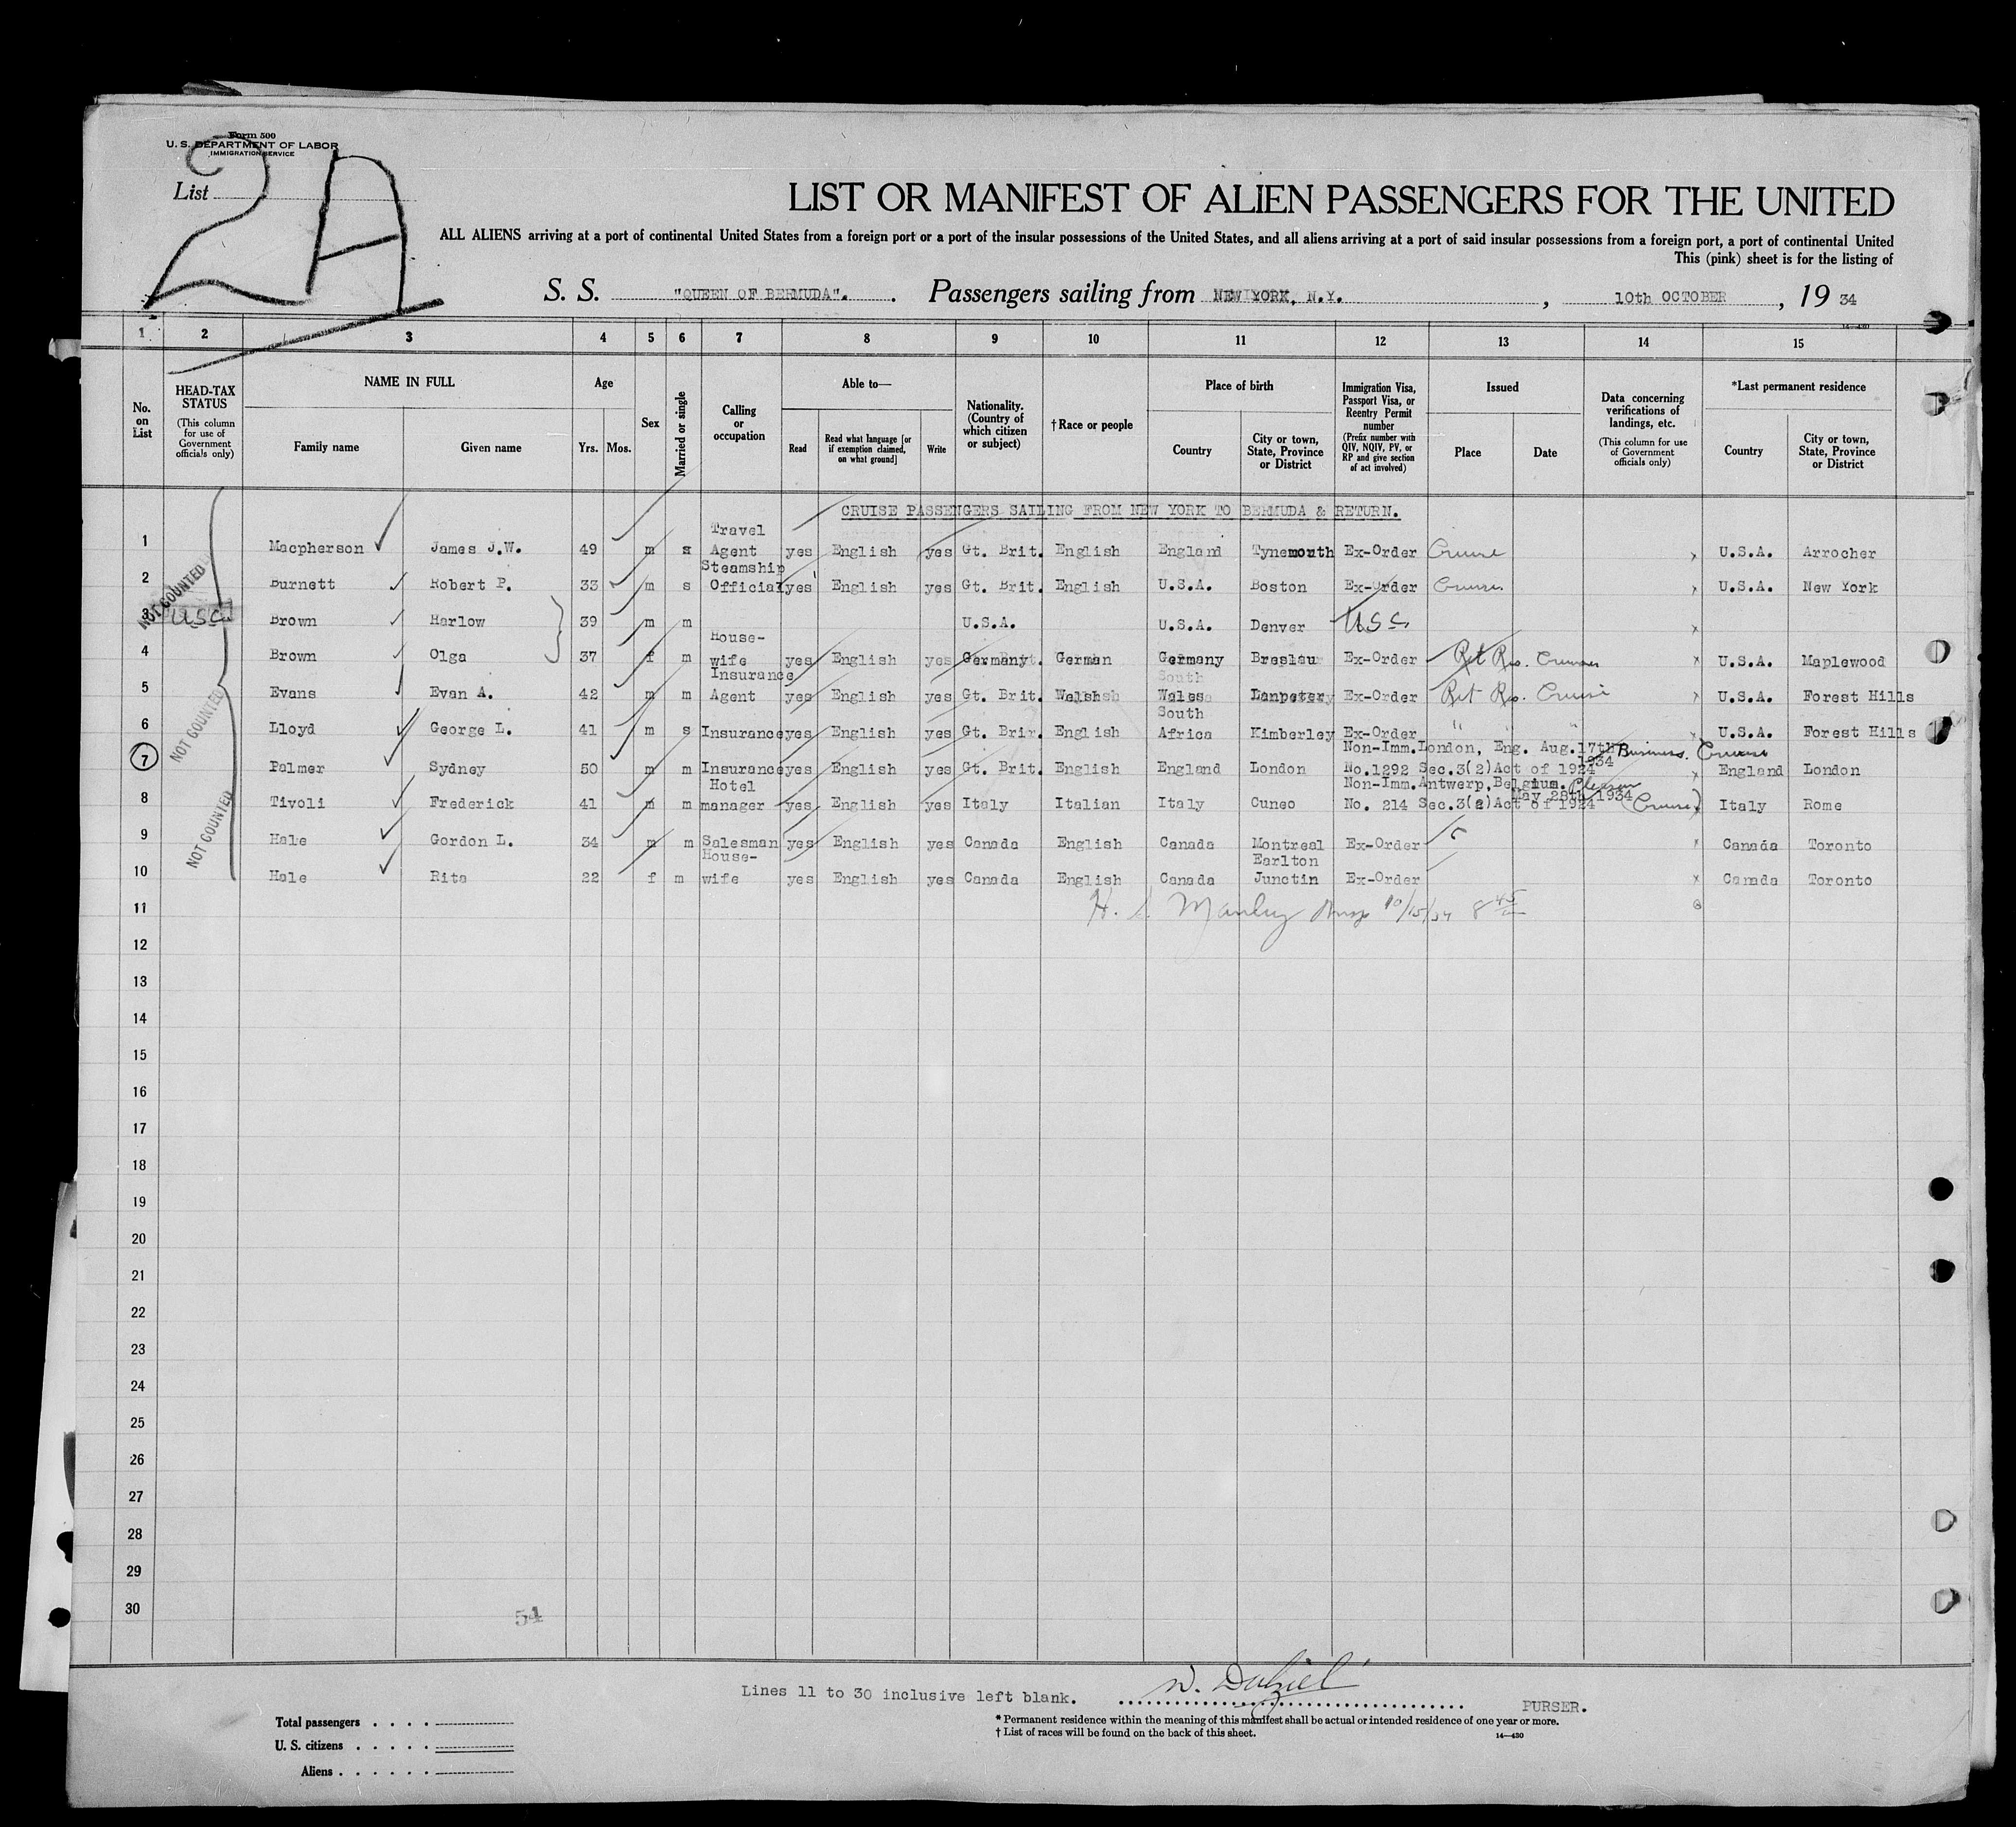 Form 500
U. S. DEPARTMENT OF LABOR
IMMIGRATION SERVICE
List
2A
LIST OR MANIFEST OF ALIEN PASSENGERS FOR THE UNITED
ALL ALIENS arriving at a port of continental United States from a foreign port or a port of the insular possessions of the United States, and all aliens arriving at a port of said insular possessions from a foreign port, a port of continental United
This (pink) sheet is for the listing of
S. S. "QUEEN OF BERMUDA". Passengers sailing from NEW YORK, N.Y. , 10th OCTOBER , 19 34
14-430
1 2 3 4 5 6 7 8 9 10 11 12 13 14 15
No. on List
HEAD-TAX STATUS (This column for use of Government officials only)
NAME IN FULL Family name Given name
Age Yrs. Mos.
Sex
Married or single
Calling or occupation
Able to— Read Read what language [or if exemption claimed, on what ground] Write
Nationality. (Country of which citizen or subject)
†Race or people
Place of birth Country City or town, State, Province or District
Immigration Visa, Passport Visa, or Reentry Permit number (Prefix number with QIV, NQIV, PV, or RP and give section of act involved)
Issued Place Date
Data concerning verifications of landings, etc. (This column for use of Government officials only)
*Last permanent residence Country City or town, State, Province or District
CRUISE PASSENGERS SAILING FROM NEW YORK TO BERMUDA & RETURN.
1 Macpherson James J.W. 49 m s Travel Agent yes English yes Gt. Brit. English England Tynemouth Ex-Order Cruise x U.S.A. Arrocher
2 Burnett Robert P. 33 m s Steamship Official yes English yes Gt. Brit. English U.S.A. Boston Ex-Order Cruise x U.S.A. New York
3 USC Brown Harlow 39 m m U.S.A. U.S.A. Denver USC x
4 Brown Olga 37 f m House-wife yes English yes Germany German Germany Breslau Ex-Order Ret Res. Cruise x U.S.A. Maplewood
5 Evans Evan A. 42 m m Insurance Agent yes English yes Gt. Brit. Welsh Wales Lanpeter Ex-Order Ret Res. Cruise x U.S.A. Forest Hills
6 Lloyd George L. 41 m s Insurance yes English yes Gt. Brir. English South Africa Kimberley Ex-Order " " " x U.S.A. Forest Hills
7 Palmer Sydney 50 m m Insurance yes English yes Gt. Brit. English England London Non-Imm. London, Eng. Aug.17th 1934 No.1292 Sec.3(2)Act of 1924 Business. Cruise x England London
8 Tivoli Frederick 41 m m Hotel manager yes English yes Italy Italian Italy Cuneo Non-Imm. Antwerp, Belgium. May 28th 1934 No. 214 Sec.3(2)Act of 1924 Pleasure (Cruise) Italy Rome
9 Hale Gordon L. 34 m m Salesman yes English yes Canada English Canada Montreal Ex-Order x Canada Toronto
10 Hale Rita 22 f m House-wife yes English yes Canada English Canada Earlton Junctin Ex-Order x Canada Toronto
NOT COUNTED
NOT COUNTED
NOT COUNTED
11 10/15/34 8 45
12
13
14
15
16
17
18
19
20
21
22
23
24
25
26
27
28
29
30
54
Lines 11 to 30 inclusive left blank. W. Dalziel PURSER.
Total passengers . . . .
U. S. citizens . . . . .
Aliens . . . . . .
* Permanent residence within the meaning of this manifest shall be actual or intended residence of one year or more.
† List of races will be found on the back of this sheet. 14—430